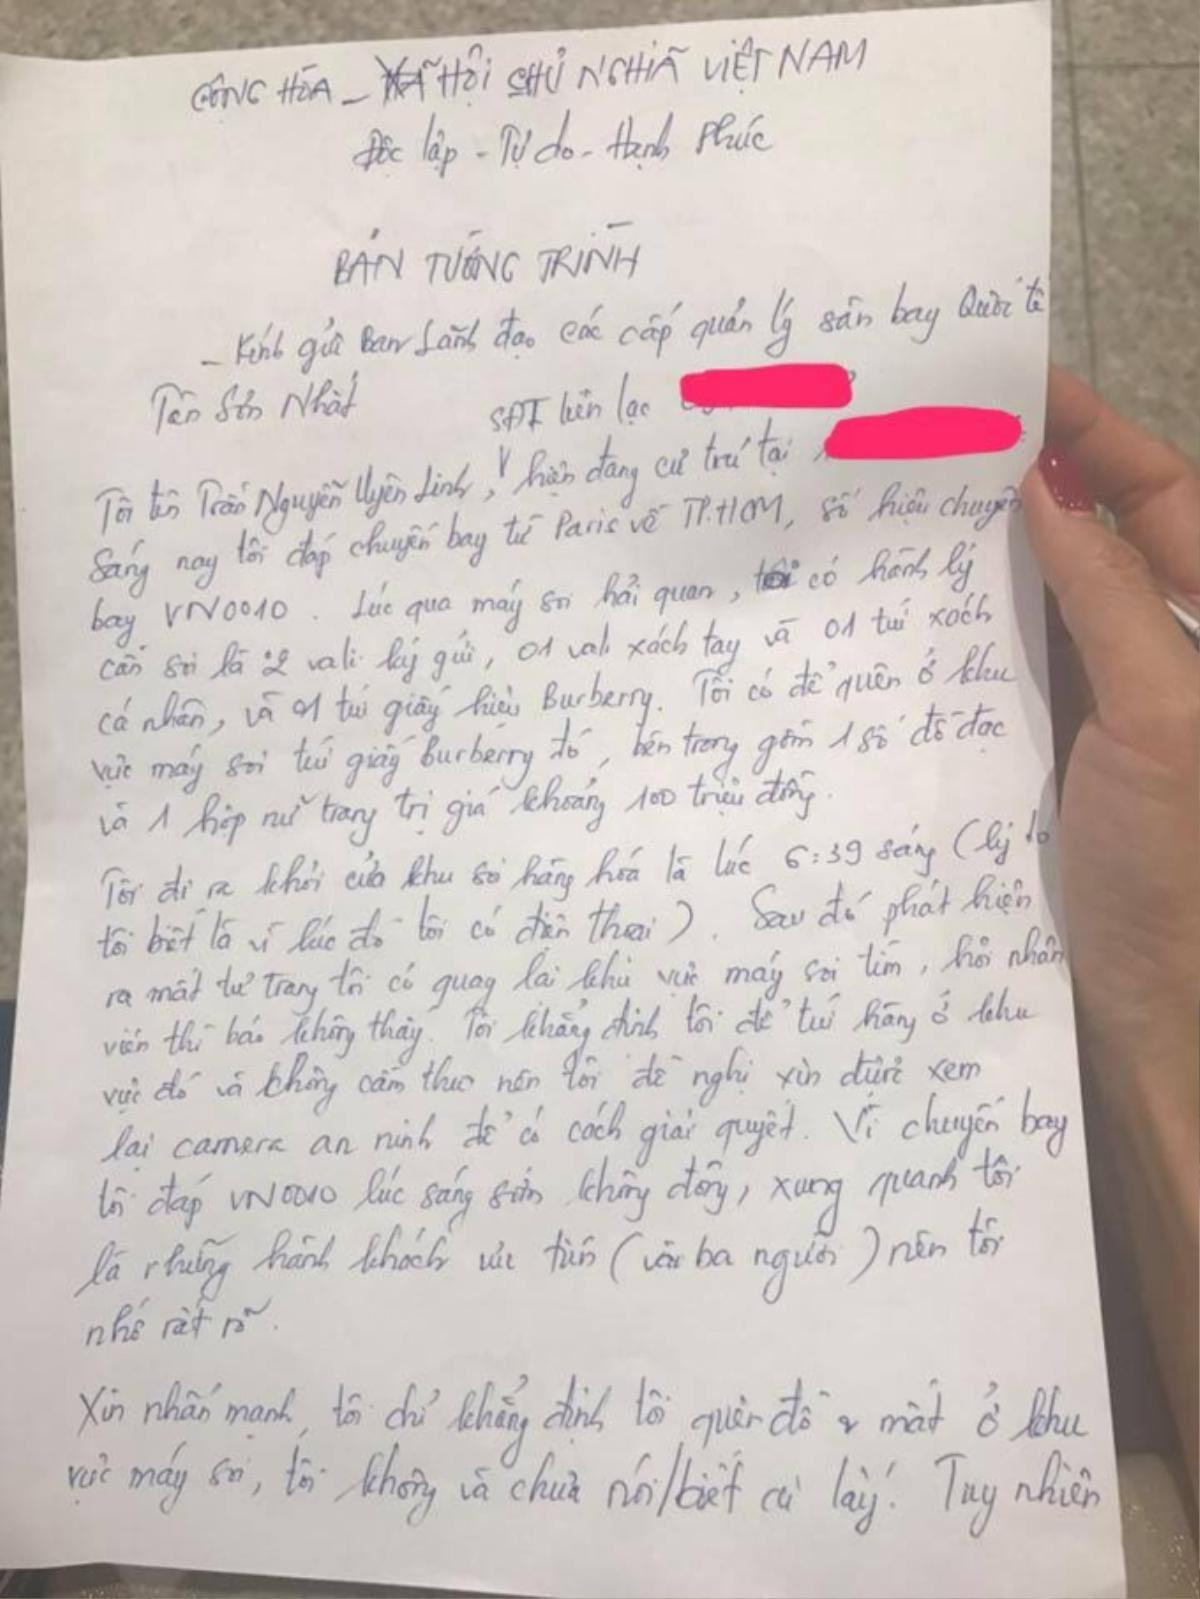 CỘNG HÒA - XÃ HỘI CHỦ NGHĨA VIỆT NAM
Độc lập - Tự do - Hạnh Phúc
BẢN TƯỜNG TRÌNH
- Kính gửi Ban Lãnh đạo các cấp quản lý sân bay Quốc tế
Tân Sơn Nhất SĐT liên lạc
Tôi tên Trần Nguyễn Uyên Linh, hiện đang cư trú tại
Sáng nay tôi đáp chuyến bay từ Paris về TP.HCM, số hiệu chuyến
bay VN0010. Lúc qua máy soi hải quan, tôi có hành lý
cần soi là 2 vali ký gửi, 01 vali xách tay và 01 túi xách
cá nhân, và 01 túi giấy hiệu Burberry. Tôi có để quên ở khu
vực máy soi túi giấy Burberry đó, bên trong gồm 1 số đồ đạc
và 1 hộp nữ trang trị giá khoảng 100 triệu đồng.
Tôi đi ra khỏi cửa khu soi hàng hoá là lúc 6:39 sáng (lý do
tôi biết là vì lúc đó tôi có điện thoại). Sau đó phát hiện
ra mất tư trang tôi có quay lại khu vực máy soi tìm, hỏi nhân
viên thì báo không thấy. Tôi khẳng định tôi để túi hàng ở khu
vực đó và không cầm theo nên tôi đề nghị xin được xem
lại camera an ninh để có cách giải quyết. Vì chuyến bay
tôi đáp VN0010 lúc sáng sớm không đông, xung quanh tôi
là những hành khách ưu tiên (vài ba người) nên tôi
nhớ rất rõ.
Xin nhấn mạnh, tôi chỉ khẳng định tôi quên đồ & mất ở khu
vực máy soi, tôi không và chưa nói/biết ai lấy! Tuy nhiên